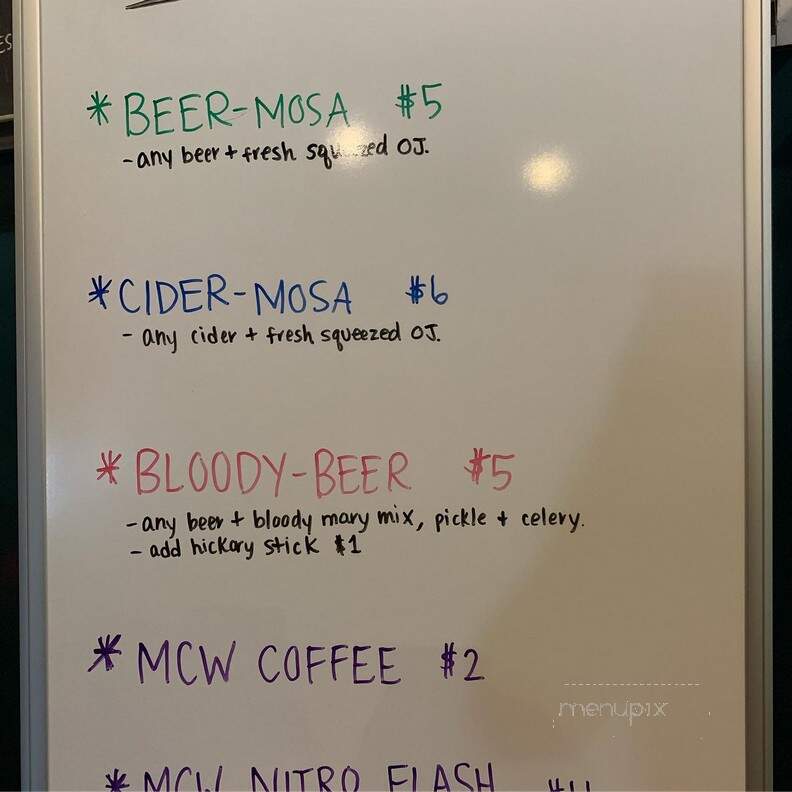 * BEER-MOSA $5
- any beer + fresh squeezed OJ.
* CIDER-MOSA $6
- any cider + fresh squeezed OJ.
* BLOODY-BEER $5
- any beer + bloody mary mix, pickle + celery.
- add hickory stick $1
* MCW COFFEE $2
menupix
* MCW NITRO FLASH